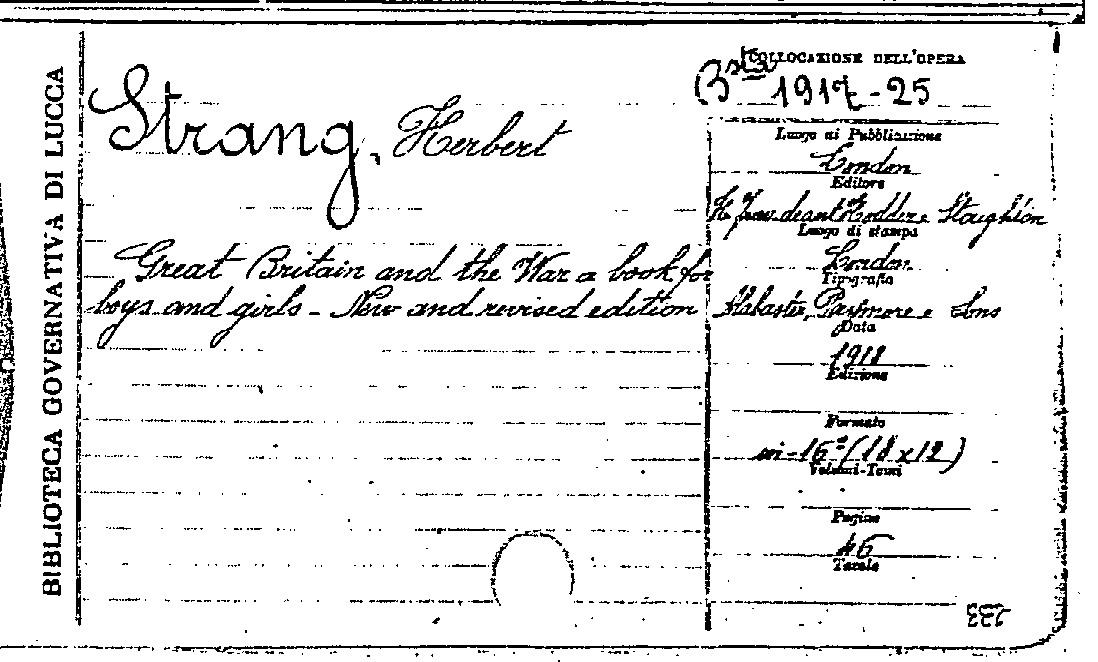 BIBLIOTECA GOVERNATIVA DI LUCCA
Strang, Herbert
Great Britain and the War a book for
boys and girls - New and revised edition
COLLOCAZIONE DELL'OPERA
Bsta 1917-25
Luogo di Pubblicazione
London
Editore
H. Frowde and Hodder e Stoughton
Luogo di stampa
London
Tipografia
Alabaster, Passmore e Sons
Data
1918
Edizione
Formato
in-16° (18 x 12)
Volumi-Tomi
Pagine
46
Tavole